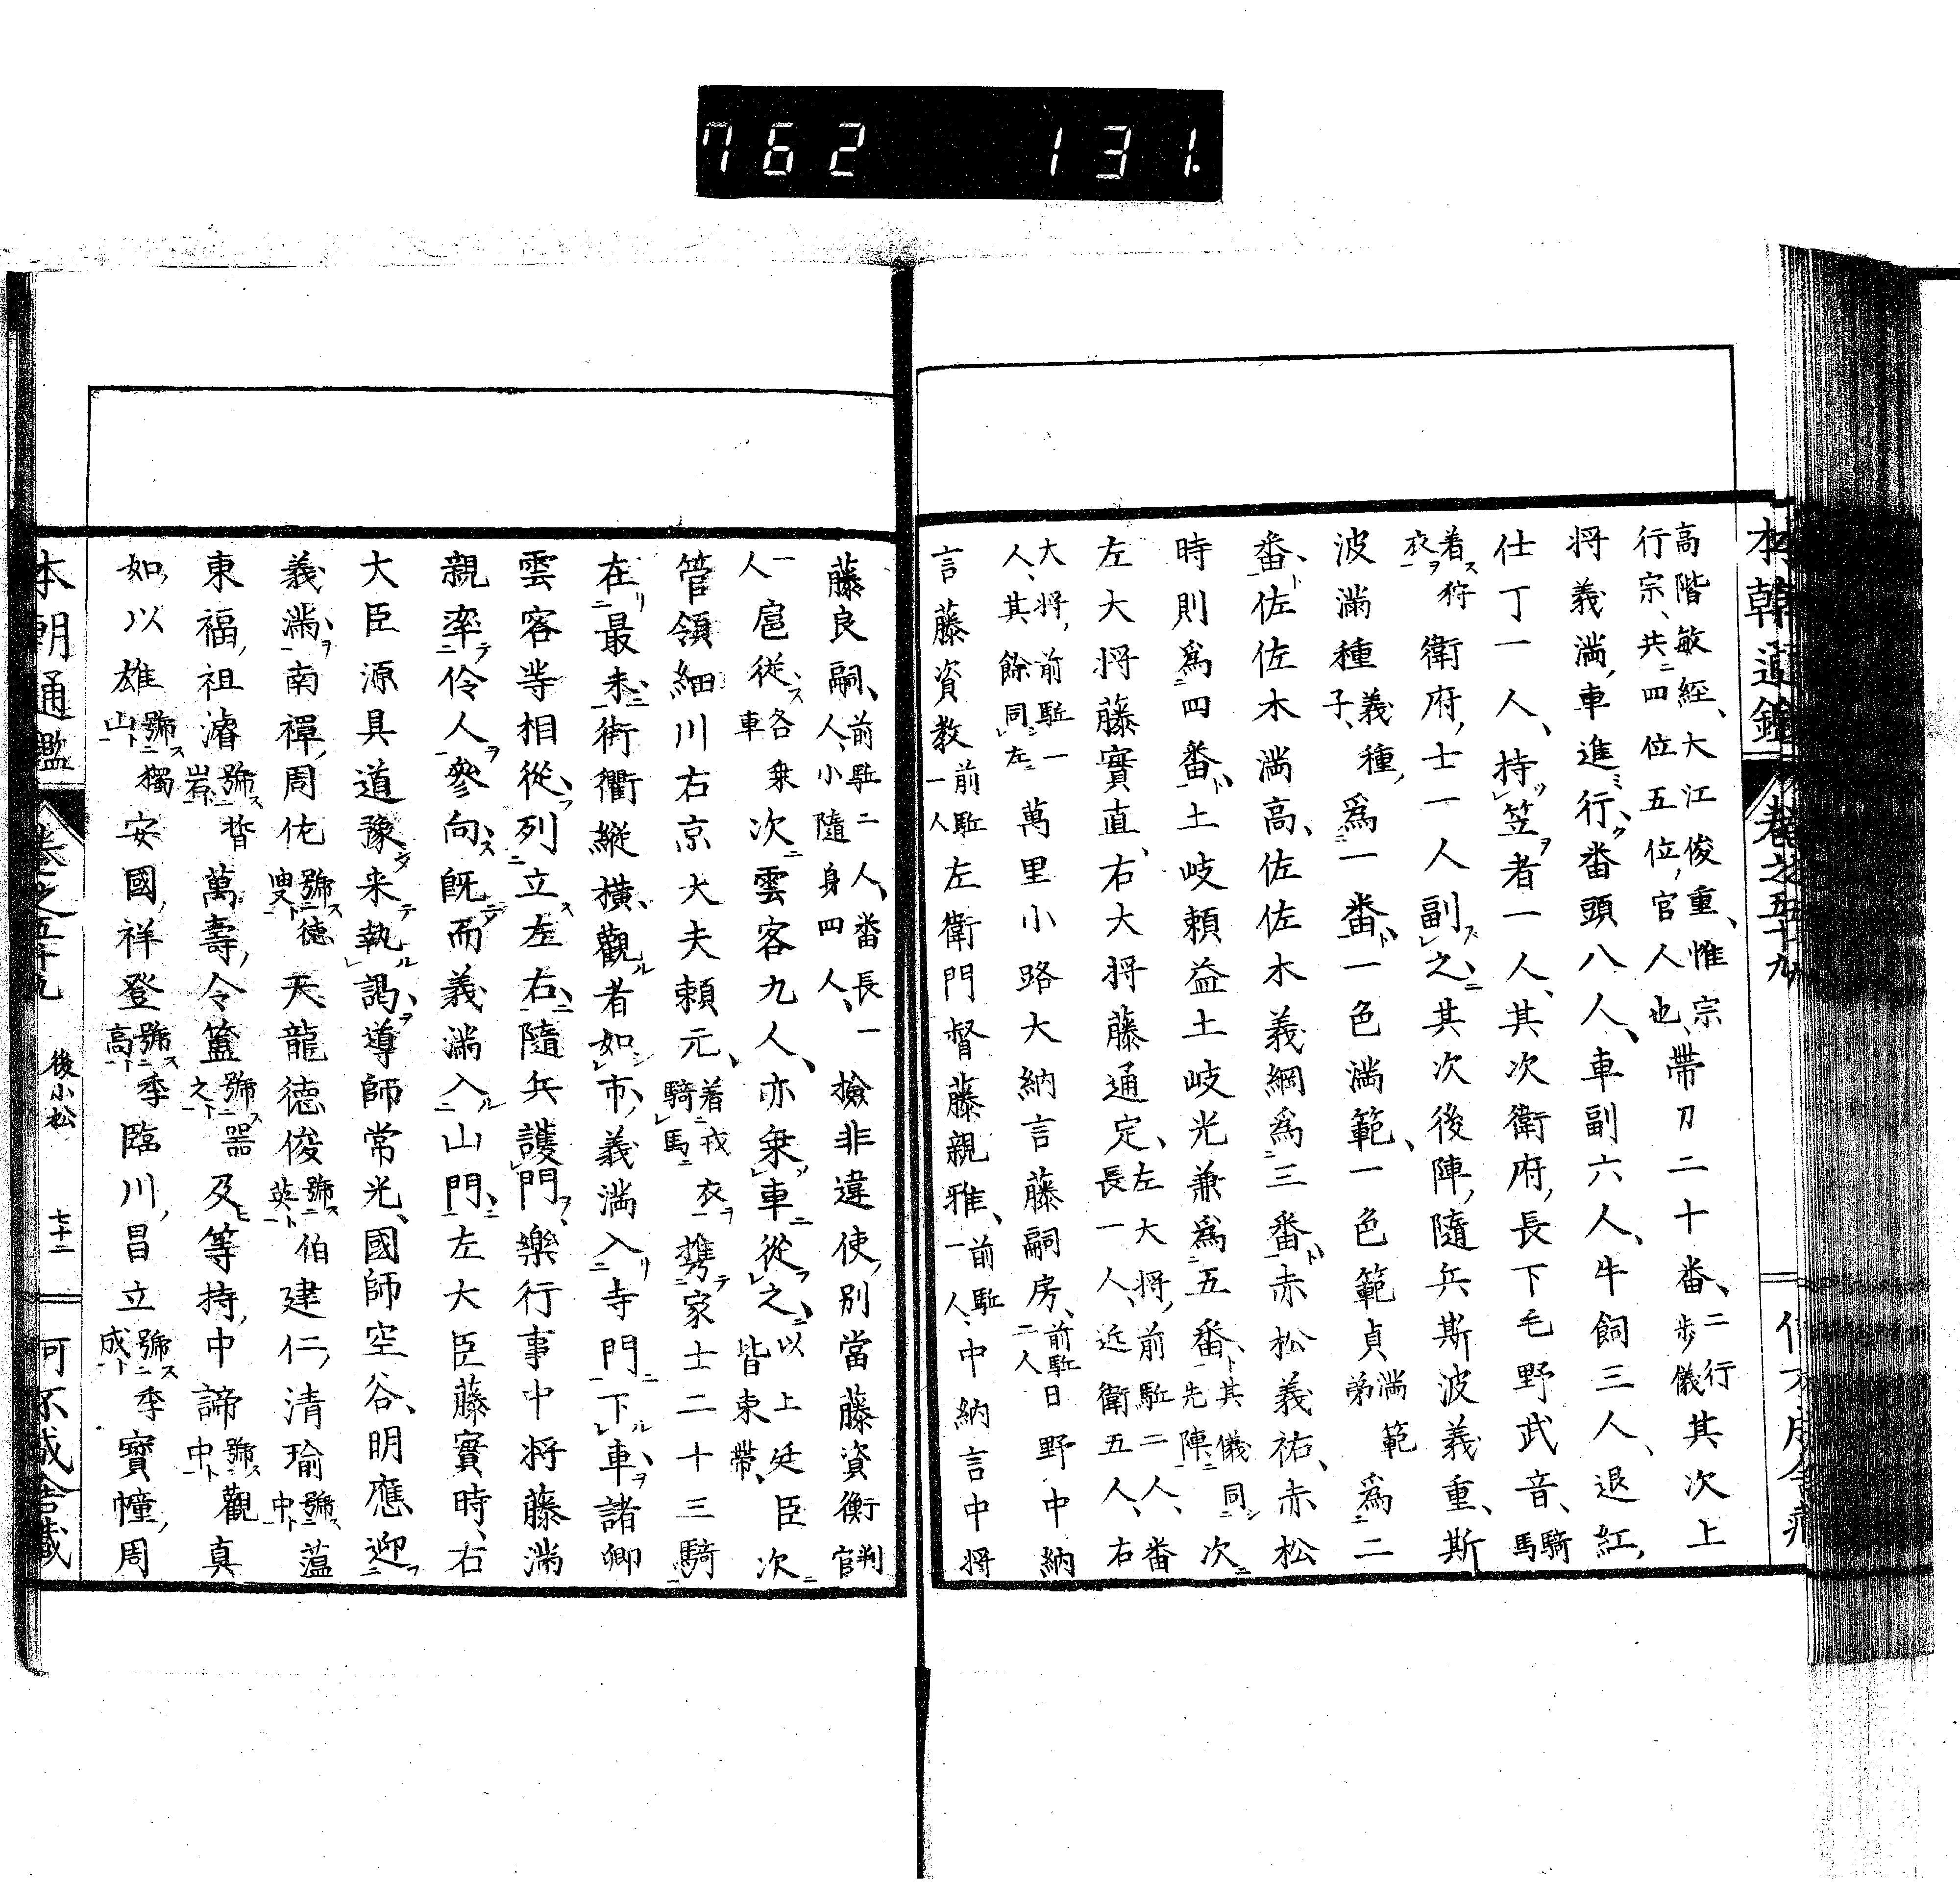 762 131
高階敏経、大江俊重、惟宗行宗、共四位五位、官人也、帶刀二十番、二行歩儀其次上
将義満、車進行、番頭八人、車副六人、牛飼三人、退紅、
仕丁一人、持笠者一人、其次衛府、長下毛野武音、騎馬
着狩衣衛府、士一人副之、其次後陣、隨兵斯波義重、斯
波満種義種、子、爲一番、一色満範、一色範貞満範弟爲二
番、佐佐木満高、佐佐木義綱爲三番、赤松義祐、赤松
時則爲四番、土岐頼益土岐光兼爲五番、其儀同先陣次
左大将藤實直、右大将藤通定、左大将、前駈二人、番長一人、近衛五人、右
大将、前駈一人、其餘同左萬里小路大納言藤嗣房、前駈二人日野中納
言藤資教前駈一人左衛門督藤親雅、前駈一人、中納言中将
藤良嗣、前駈二人、番長一人、小隨身四人、檢非違使、別當藤資衡判官
一人扈從各乗車次雲客九人、亦乗車從之、以上廷臣皆束帶、次
管領細川右京大夫頼元、着戎衣騎馬携家士二十三騎
在最末、街衢縦横、觀者如市、義満入寺門下車、諸卿
雲客等相從、列立左右、隨兵護門、樂行事中将藤満
親率伶人參向、既而義満入山門、左大臣藤實時、右
大臣源具道豫来執謁、導師常光、國師空谷、明應迎
義満、南禪、周佐號德叟天龍德俊號伯英建仁、清瑜號蘊中
東福、祖濬號皆嵓萬壽、令簠號器之及等持、中諦號觀中真
如、以雄號獨山安國、祥登號季高臨川、昌立號季成寶幢、周
本朝通鑑
卷之五十九
後小松
七十二